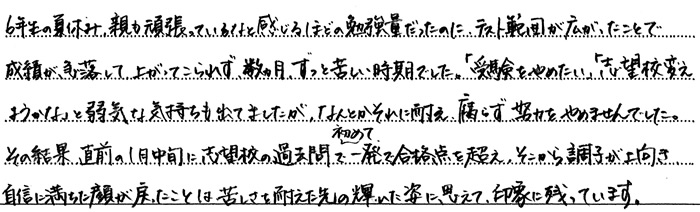 6年生の夏休み、親も頑張っているなと感じるほどの勉強量だったのに、テスト範囲が広がったことで
成績が急落して上がってこられず、数ヵ月、ずっと苦しい時期でした。「受験をやめたい」「志望校変え
ようかな」と弱気な気持ちも出てましたが、なんとかそれに耐え、腐らず努力をやめませんでした。
その結果、直前の1月中旬に志望校の過去問で初めて一発で合格点を超え、そこから調子が上向き
自信に満ちた顔が戻ったことは苦しさを耐えた先の輝いた姿に思えて、印象に残っています。